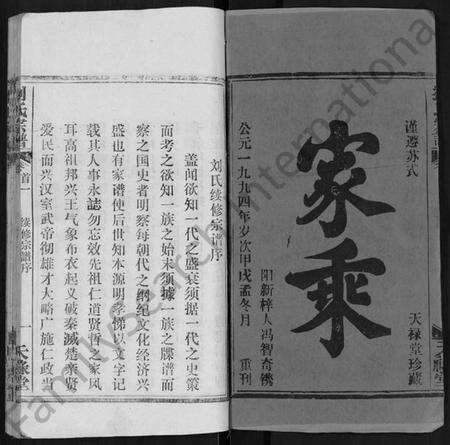 谨遵苏式
家乘
天禄堂珍藏
公元一九九四年岁次甲戌孟冬月 重刊
阳新梓人冯智奇镌
刘氏续修宗谱序
盖闻欲知一代之盛衰须据一代之史策
而考之欲知一族之始末须据一族之牒谱而
察之国史者明察每朝代之纲纪文化经济兴
盛也有家谱使后世知本源明孝悌以文字记
载其人事永誌勿忘效先祖仁道贤哲之家风
耳高祖邦兴王气象布衣起义破秦减楚亲贤
爱民而兴汉室武帝彻雄才大略广施仁政当
刘氏宗谱
首一 续修宗谱序
一 天禄堂
Familysearch International